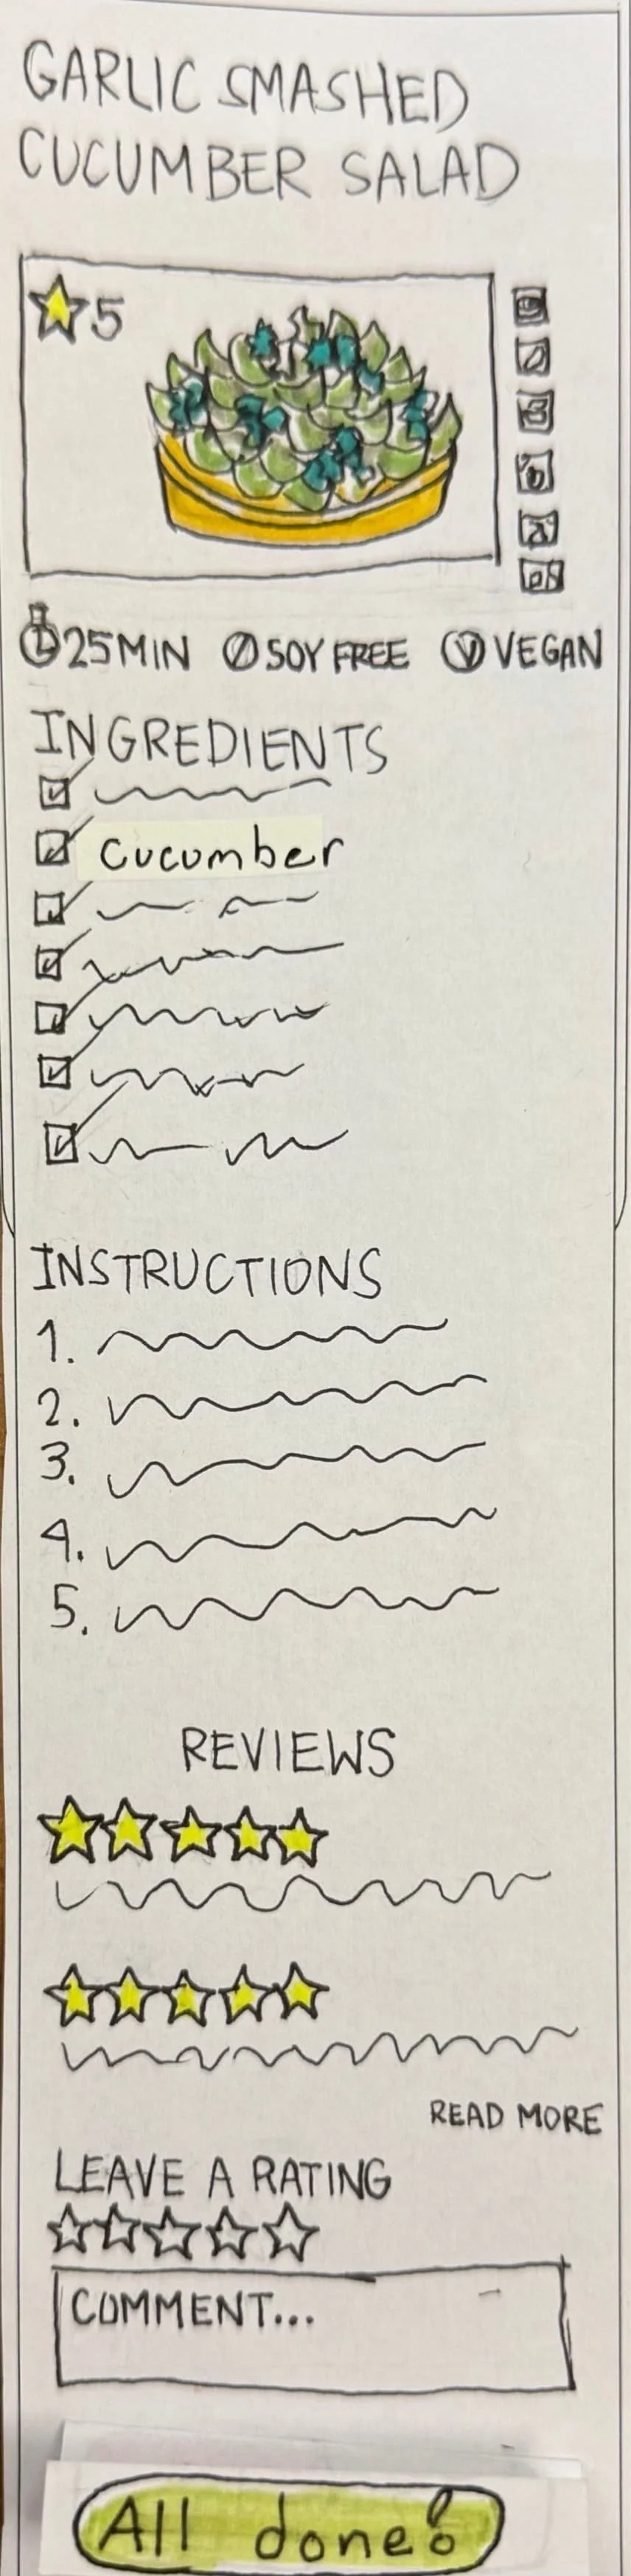 GARLIC SMASHED
CUCUMBER SALAD
5
25 MIN SOY FREE V VEGAN
INGREDIENTS
Cucumber
INSTRUCTIONS
1.
2.
3.
4.
5.
REVIEWS
READ MORE
LEAVE A RATING
COMMENT...
All done!